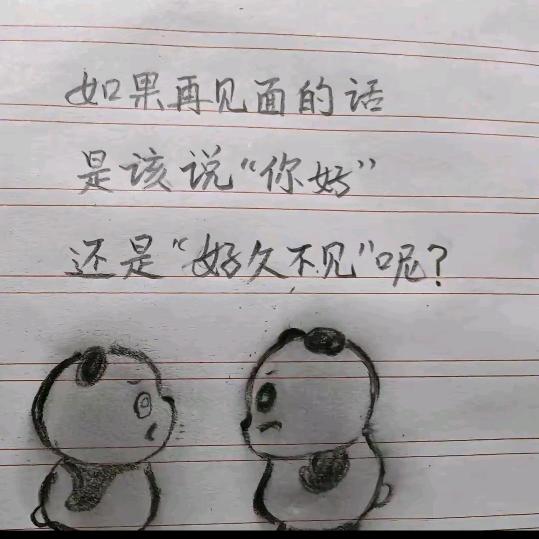 如果再见面的话
是该说“你好”
还是“好久不见”呢?